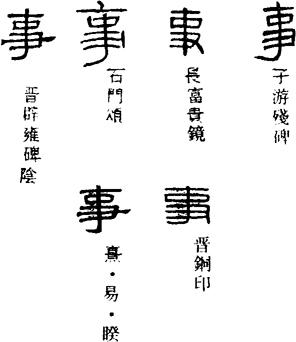 事
子游殘碑
事
長富貴鏡
事
石門頌
事
晋辟雍碑陰
事
晋銅印
事
熹・易・睽